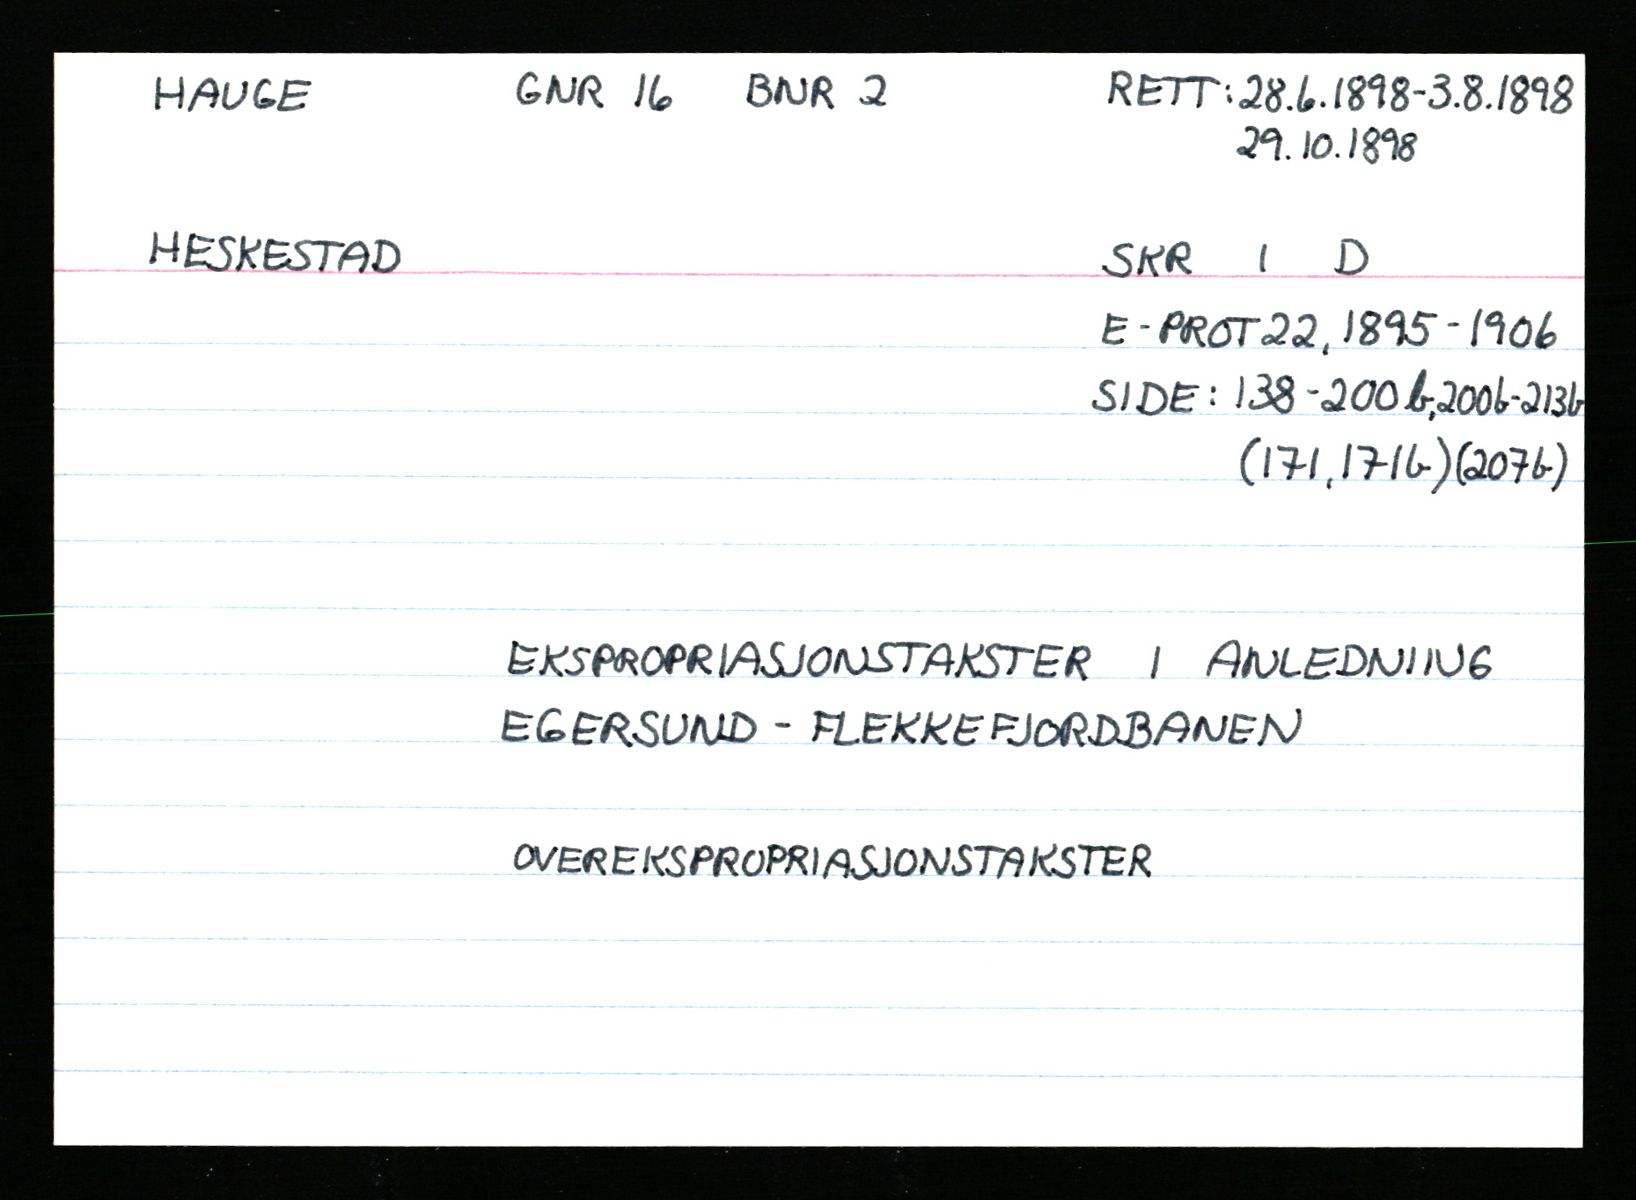 HAUGE GNR 16 BNR 2 RETT: 28.6.1898-3.8.1898
29.10.1898
HESKESTAD SKR 1 D
E-PROT 22, 1895-1906
SIDE: 138-200b, 200b-213b
(171, 171b) (207b)
EKSPROPRIASJONSTAKSTER I ANLEDNING
EGERSUND - FLEKKEFJORDBANEN
OVEREKSPROPRIASJONSTAKSTER